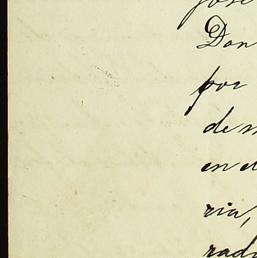 José
Don
por
de m
en el
ria,
radi